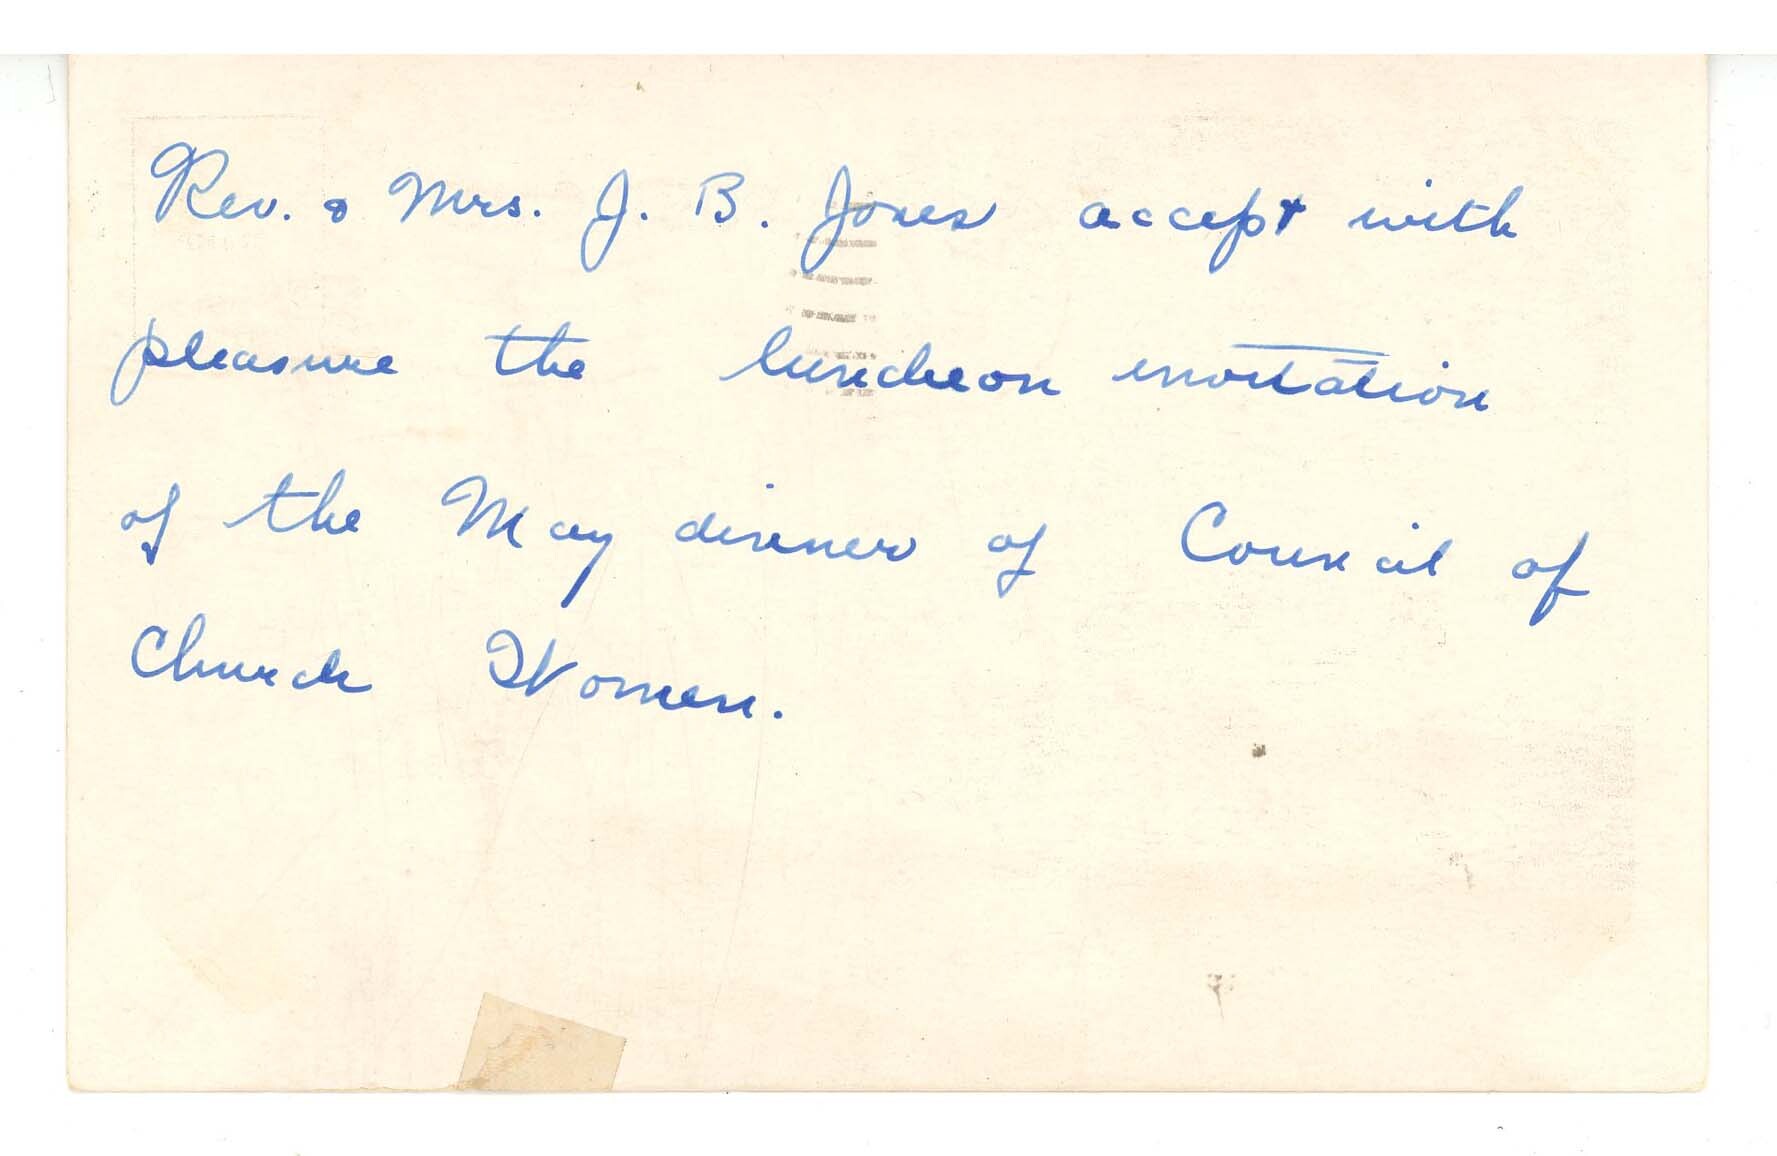 Rev. & Mrs. J. B. Jones accept with
pleasure the luncheon invitation
of the May dinner of Council of
Church Women.